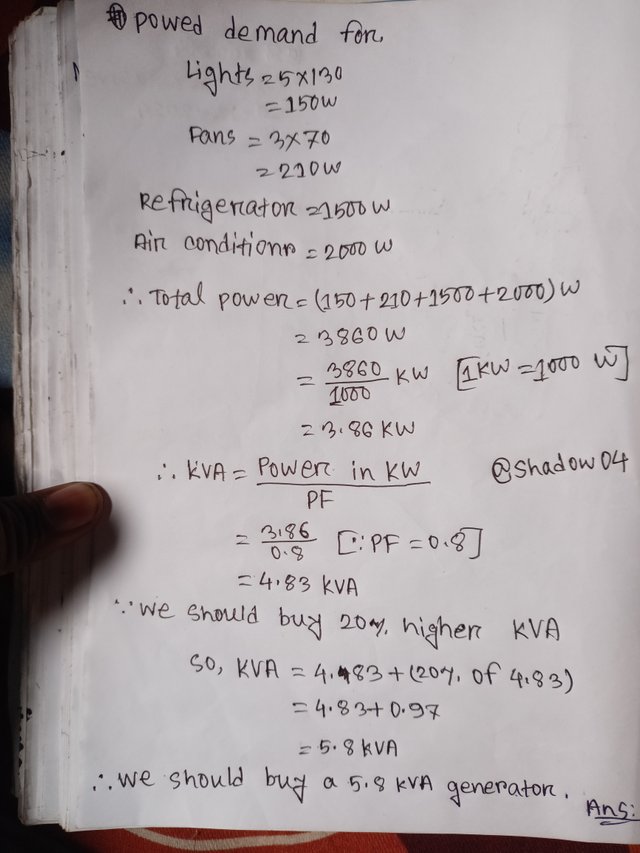 # powed demand for
Lights = 5×130
= 150W
Fans = 3×70
= 210W
Refrigerator = 1500 W
Air conditionr = 2000 W
∴ Total power = (150+210+1500+2000) W
= 3860 W
= 3860/1000 KW [1KW = 1000 W]
= 3.86 KW
∴ KVA = Power in KW / PF
@shadow04
= 3.86/0.8 [∵ PF = 0.8]
= 4.83 KVA
∵ We should buy 20% higher KVA
SO, KVA = 4.83 + (20% of 4.83)
= 4.83 + 0.97
= 5.8 KVA
∴ We should buy a 5.8 KVA generator.
Ans: